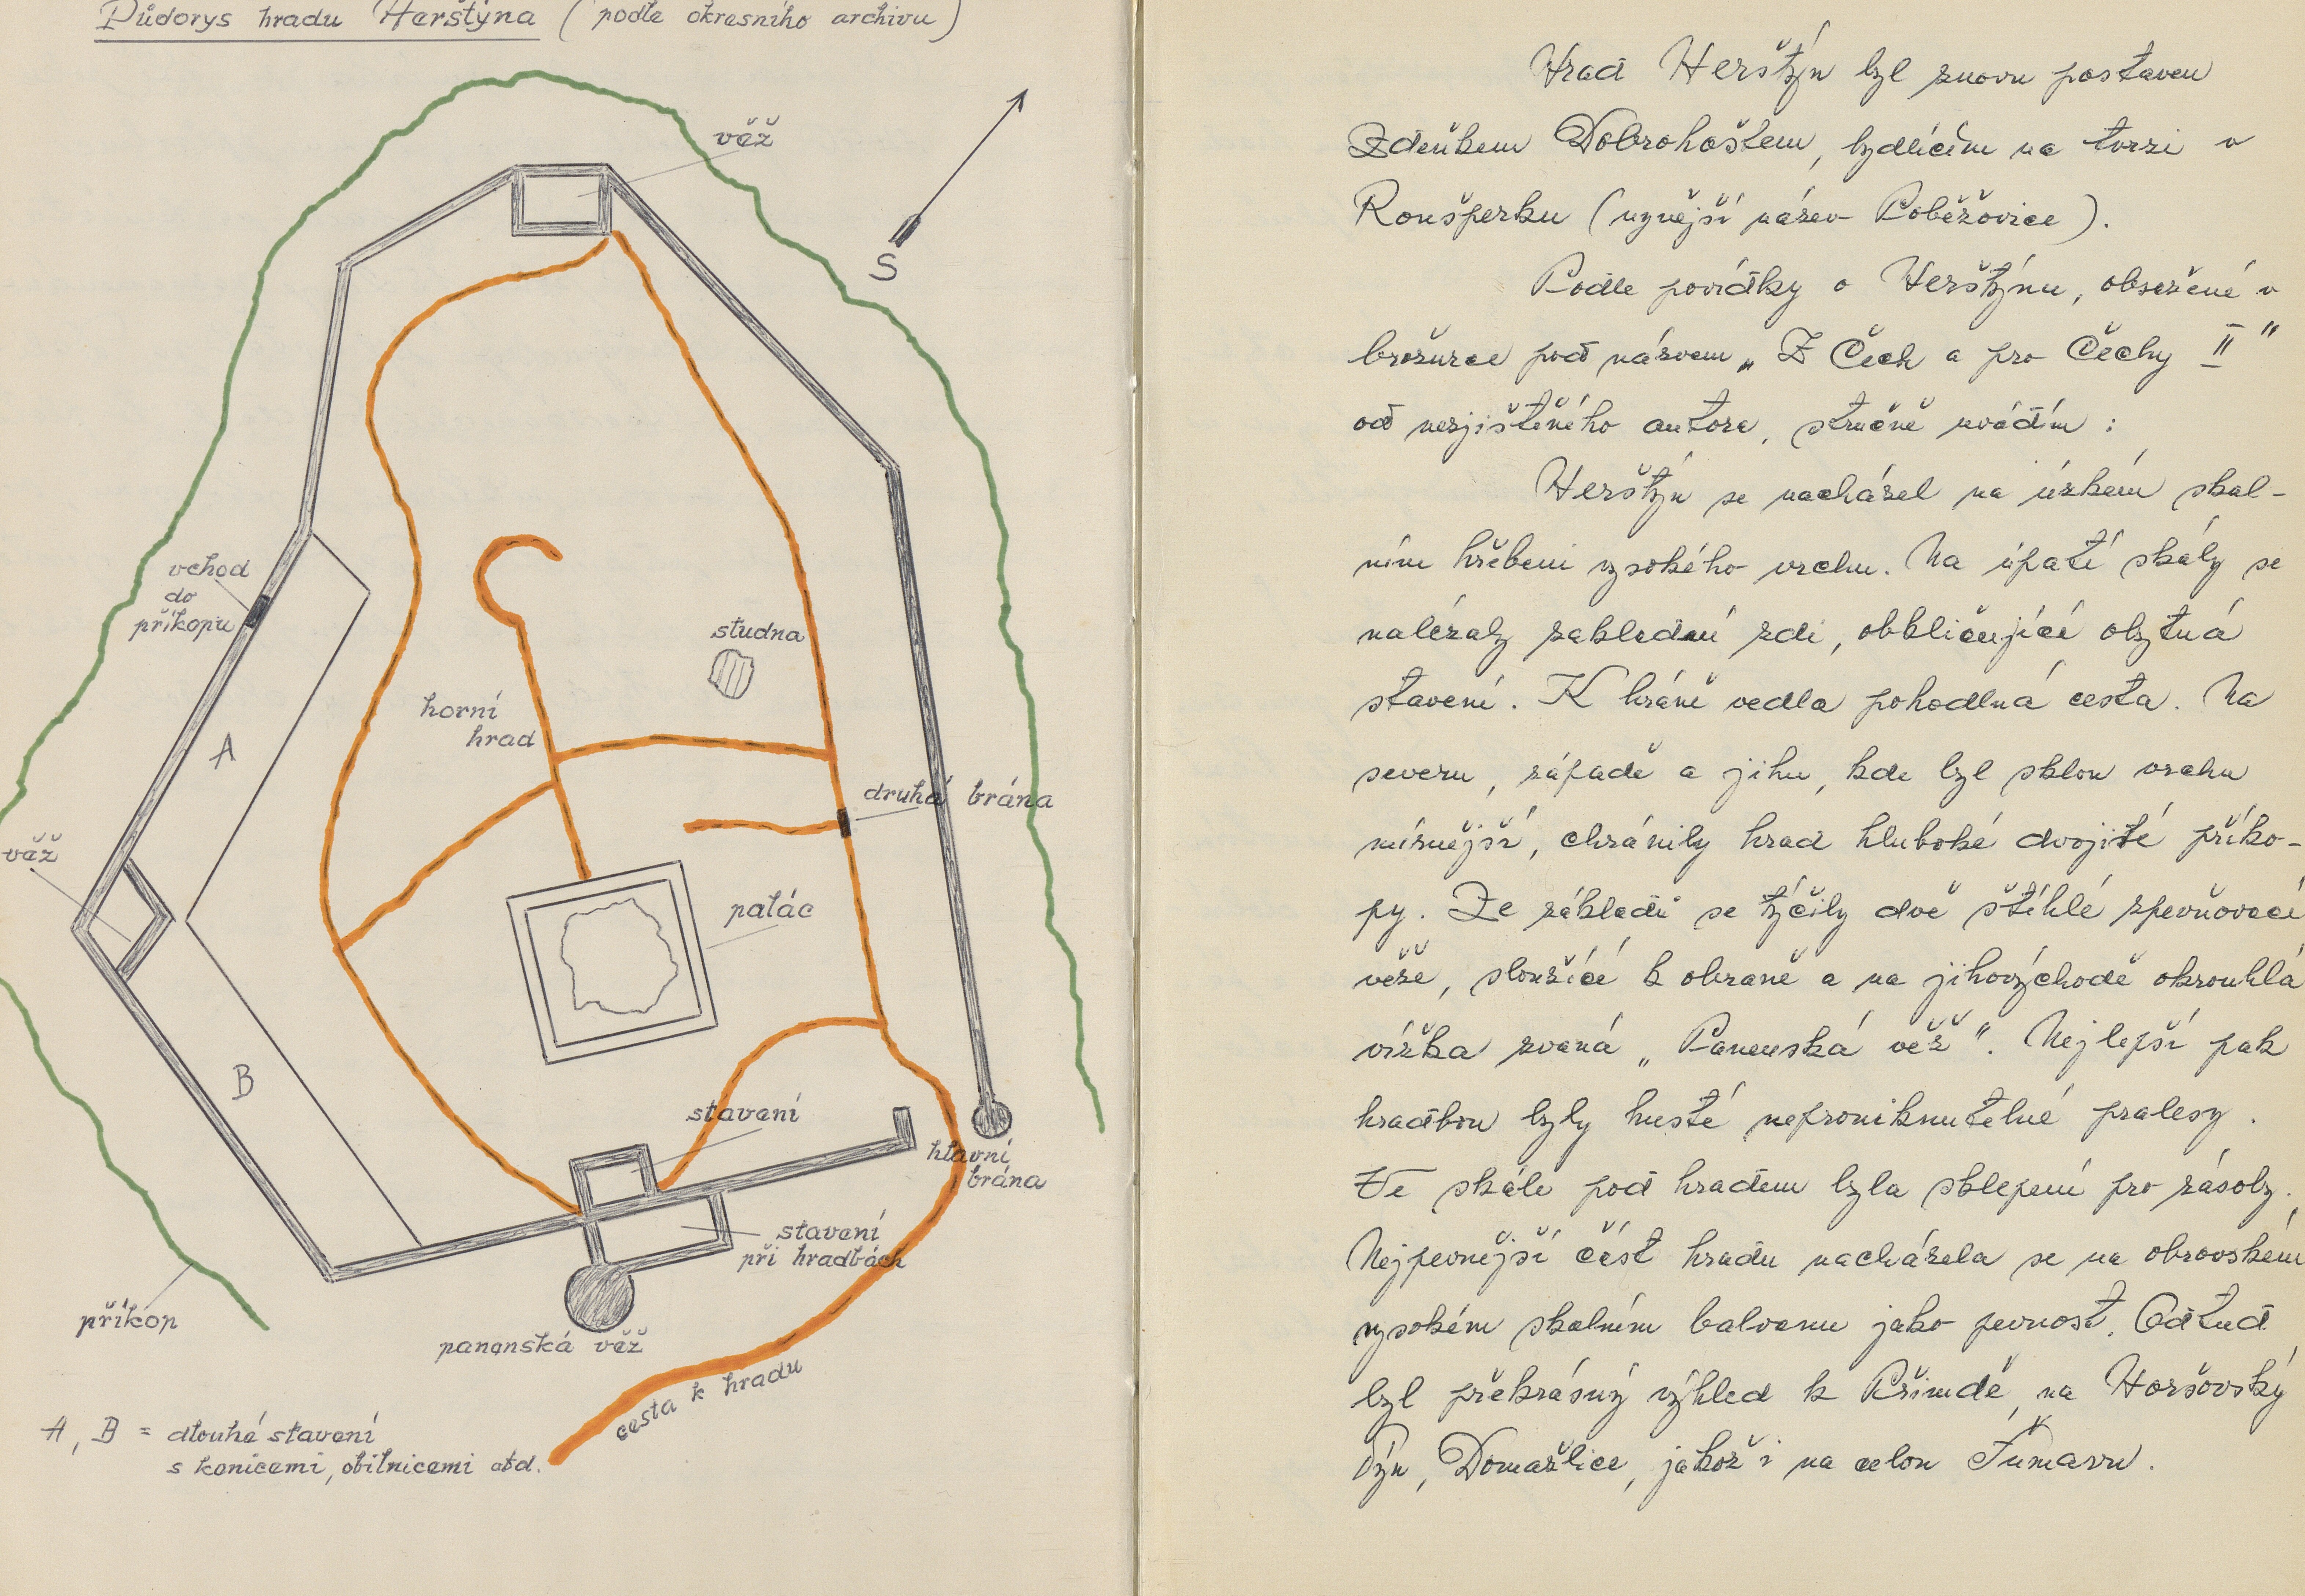 Půdorys hradu Herštýna (podle okresního archivu)
věž
S
vchod
do
příkopu
studna
horní
hrad
A
druhá brána
věž
palác
B
stavení
hlavní
brána
stavení
při hradbách
příkop
panenská věž
cesta k hradu
A, B = dlouhá stavení
s konicemi, obilnicemi atd.
Hrad Herštýn byl znovu postaven
Zdeňkem Dobrohoštem, bydlícím na tvrzi v
Ronšperku (nynější název Poběžovice).
Podle povídky o Herštýnu, obsažené v
brožurce pod názvem „Z Čech a pro Čechy II"
od nezjištěného autora, stručně uvádím :
Herštýn se nacházel na úzkém skal-
ním hřebeni vysokého vrchu. Na úpatí skály se
nalézaly základní zdi, obkličující obytná
stavení. K bráně vedla pohodlná cesta. Na
severu, západě a jihu, kde byl sklon vrchu
mírnější, chránily hrad hluboké dvojité příko-
py. Ze základů se týčily dvě štíhlé zpevňovací
věže, sloužící k obraně a na jihovýchodě okrouhlá
vížka zvaná „Panenská věž". Nejlepší pak
hradbou byly husté neproniknutelné pralesy.
Ve skále pod hradem byla sklepení pro zásoby.
Nejpevnější část hradu nacházela se na obrovském
vysokém skalním balvanu jako pevnost. Odtud
byl překrásný výhled k Přimdě, na Horšovský
Týn, Domažlice, jakož i na celou Šumavu.